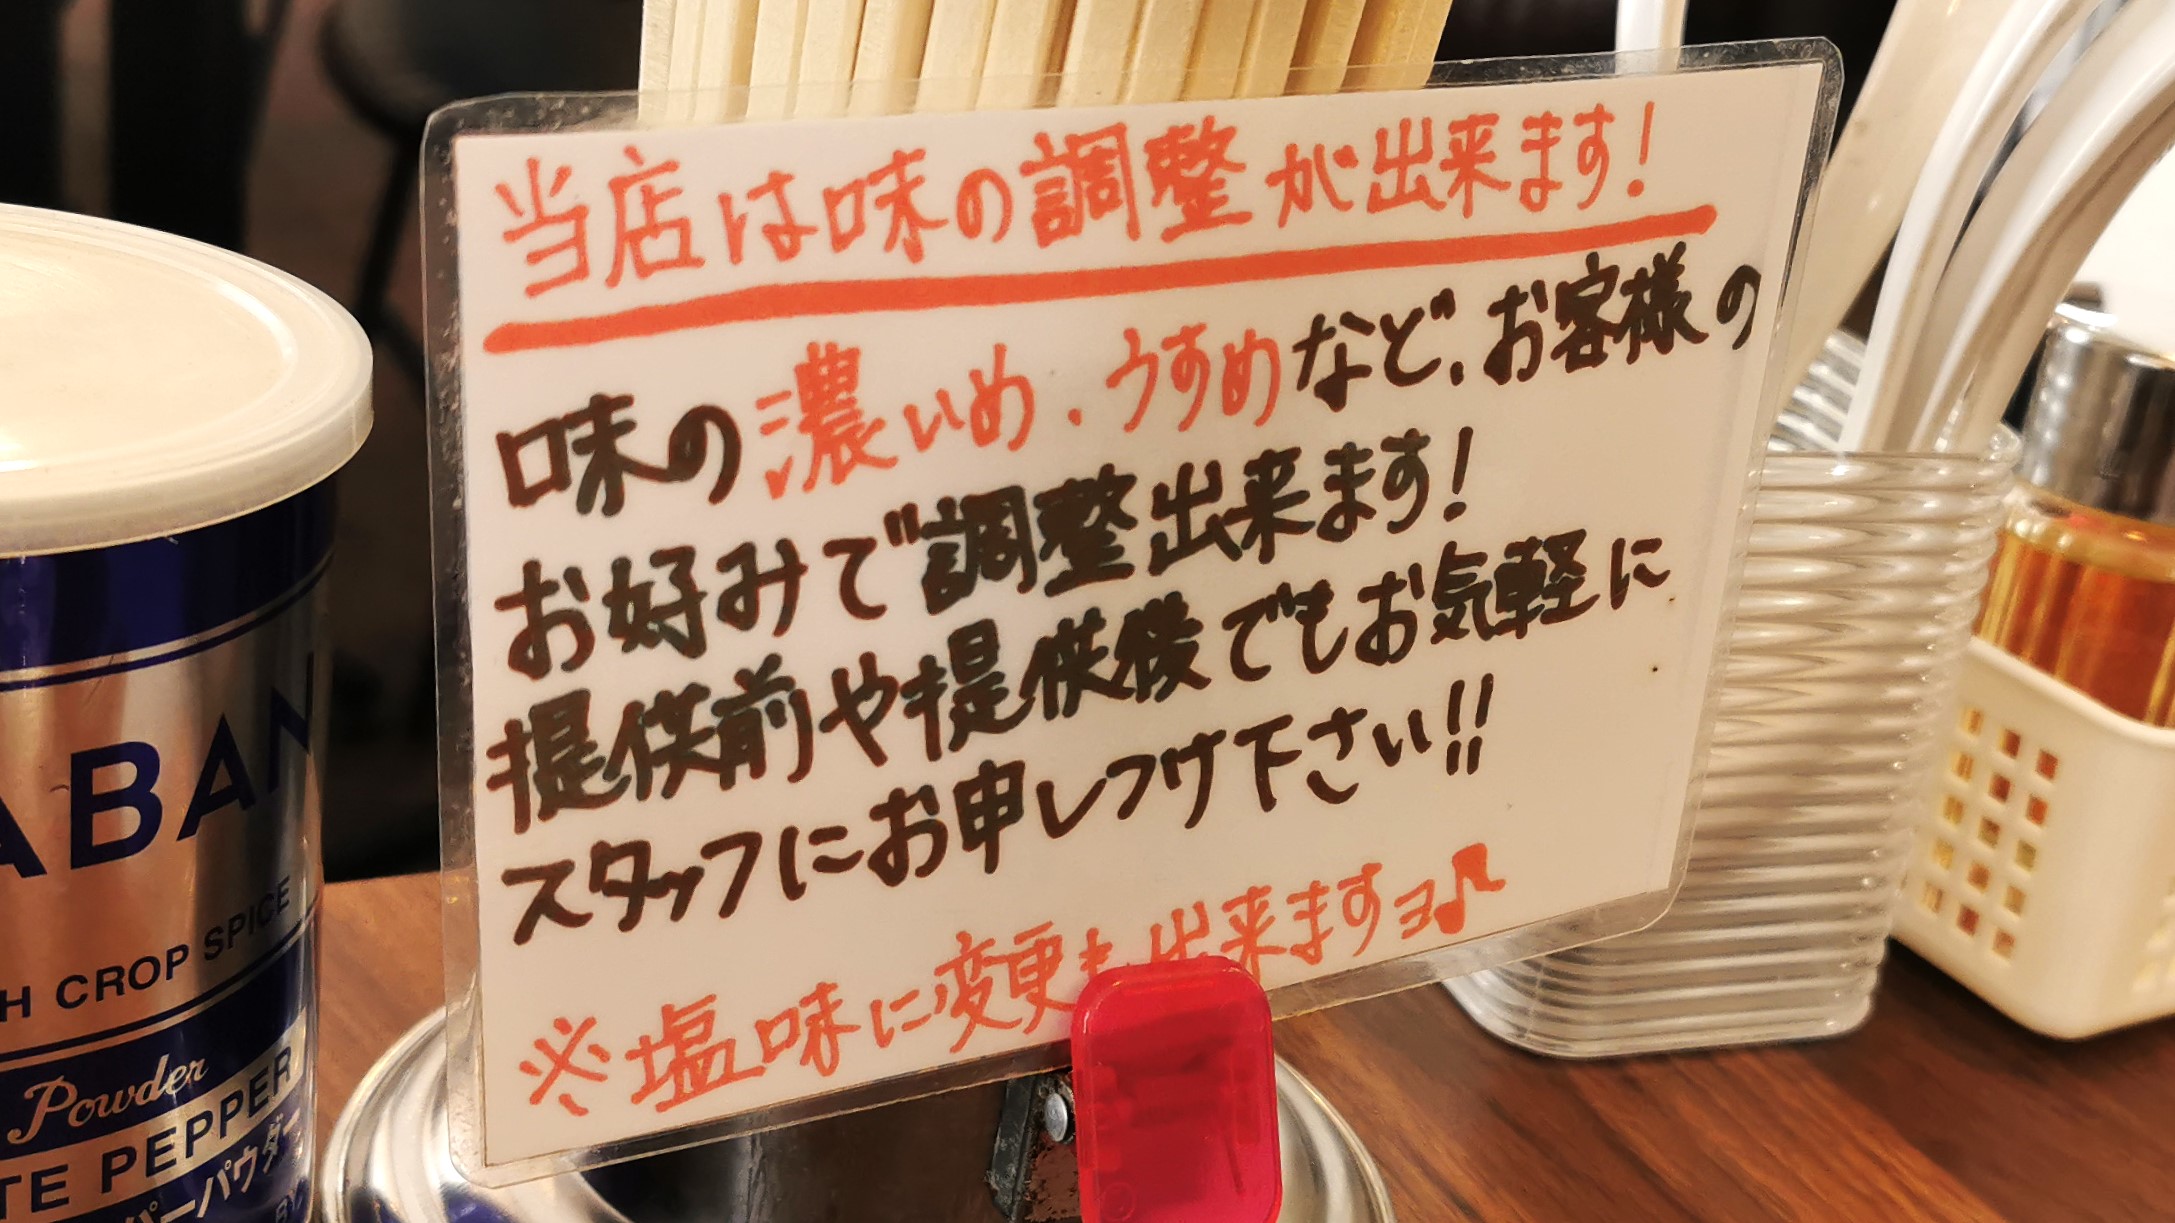 当店は味の調整が出来ます!
味の濃いめ、うすめなど、お客様の
お好みで調整出来ます!
提供前や提供後でもお気軽に
スタッフにお申しつけ下さい!!
※塩味に変更も出来ますヨ♪
ABAN
H CROP SPICE
Powder
TE PEPPER
パーパウダー